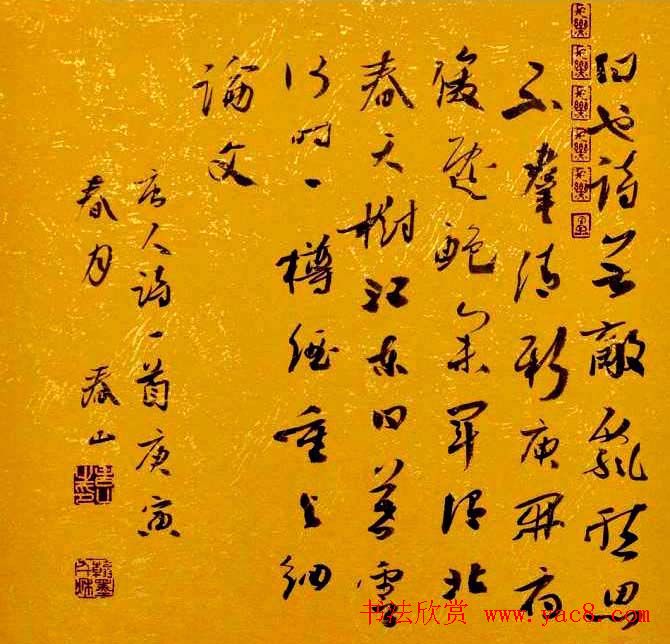 白也詩無敵飄然思
不羣清新庾開府
俊逸鮑參軍渭北
春天樹江東日暮雲
何時一樽酒重與細
論文
唐人詩一首庚寅
春月
书法欣赏 www.yac8.com